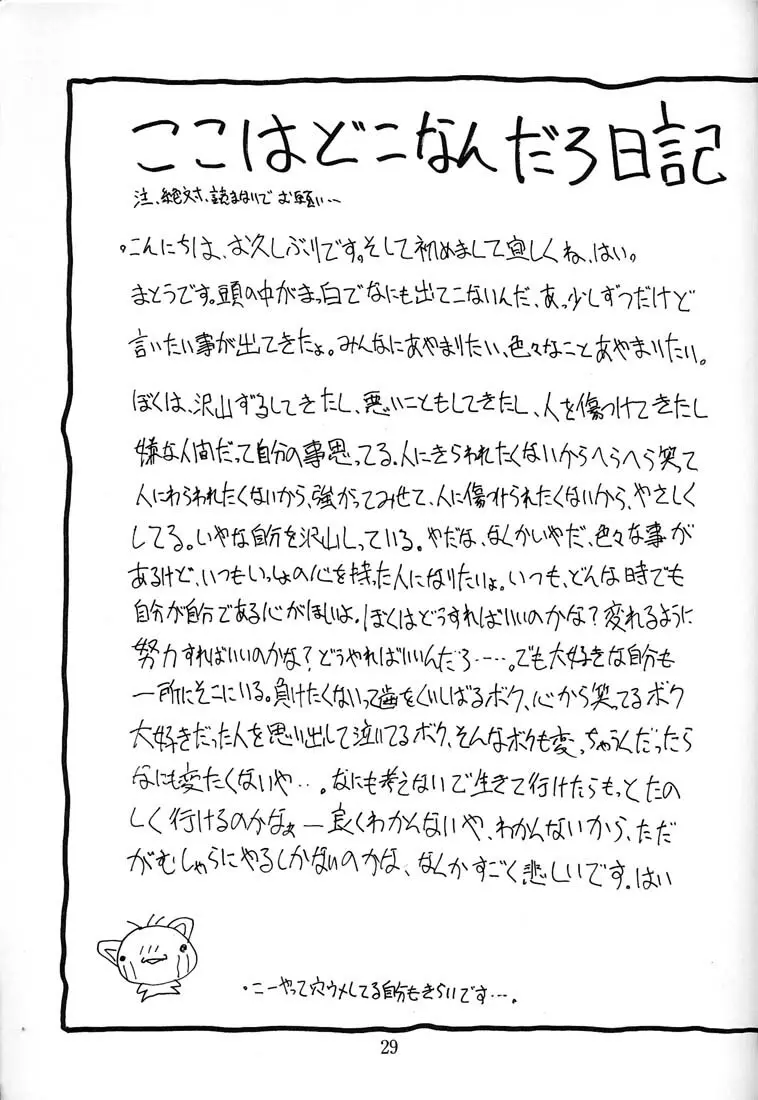 ここはどこなんだろ日記
注、絶対、読まないでお願い…
・こんにちは、お久しぶりです。そして初めまして宜しくね、はい。
まとうです。頭の中がまっ白でなにも出てこないんだ、あっ少しずつだけど
言いたい事が出てきたょ。みんなにあやまりたい、色々なことあやまりたい。
ぼくは、沢山ずるしてきたし、悪いこともしてきたし、人を傷つけてきたし
嫌な人間だって自分の事思ってる。人にきらわれたくないからへらへら笑て
人にわらわれたくないから、強がってみせて、人に傷つけられたくないから、やさしく
してる。いやな自分を沢山しっている。やだな、なんかいやだ、色々な事が
あるけど、いつもいっしょの心を持った人になりたいょ。いつも、どんな時でも
自分が自分である心がほしいよ。ぼくはどうすればいいのかな?変れるように
努力すればいいのかな?どうやればいいんだろ……。でも大好きな自分も
一所にそこにいる。負けたくないって歯をくいしばるボク、心から笑ってるボク
大好きだった人を思い出して泣いてるボク、そんなボクも変っちゃうんだったら
なにも変たくないや…。なにも考えないで生きて行けたらもっとたの
しく行けるのかなぁー良くわかんないや、わかんないから、ただ
がむしゃらにやるしかないのかな、なんかすごく悲しいです。はい
・こーやって穴ウメしてる自分もきらいです…。
29